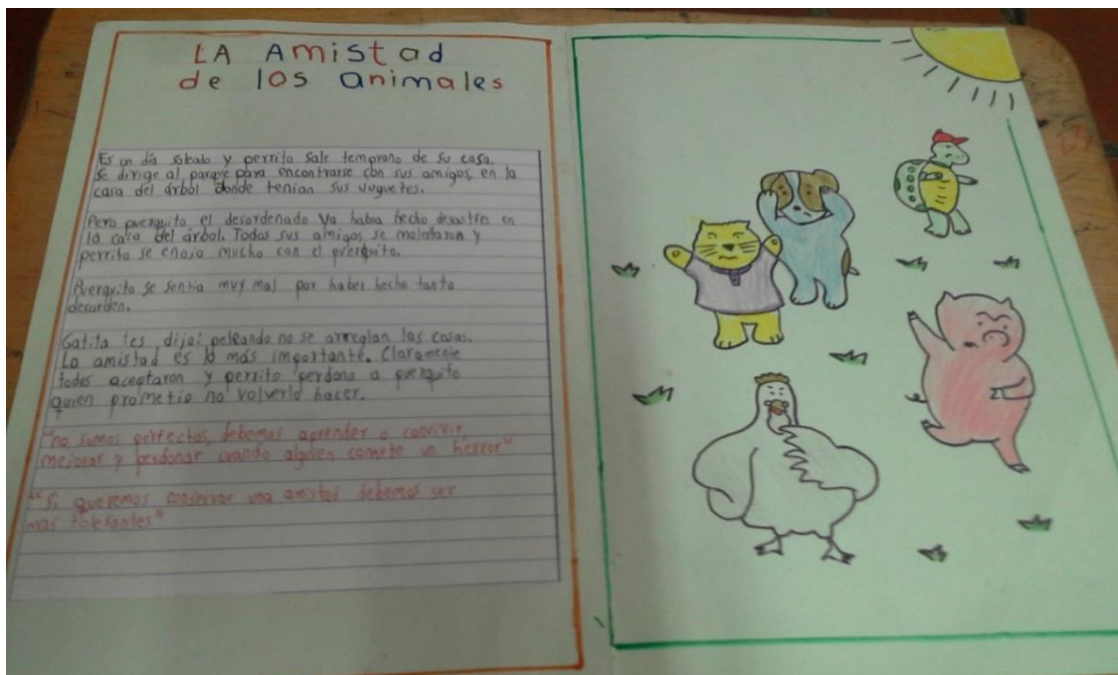 LA Amistad
de los animales
Es un día sabado y perrito sale temprano de su casa.
Se dirige al parque para encontrarse con sus amigos, en la
casa del árbol donde tenian sus juguetes.
Pero puerquito el desordenado ya habia hecho desastres en
la casa del árbol. Todos sus amigos se molestaron y
perrito se enojo mucho con el puerquito.
Puerquito se sentia muy mas por haber hecho tanto
desorden.
Gatita les dijo: peleando no se arreglan las cosas.
La amistad es lo más importante. Claramente
todos aceptaron y perrito perdono a puerquito
quien prometio no volverlo hacer.
"no somos perfectos, debemos aprender a convivir,
mejorar y perdonar cuando alguien comete un herror"
"Si queremos conservar una amistad debemos ser
mas tolerantes"